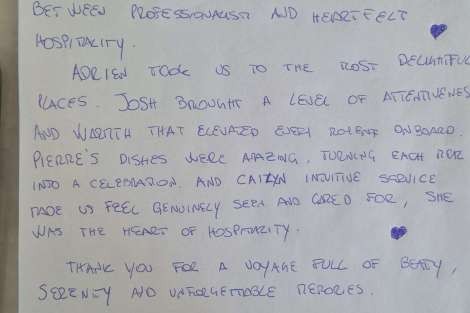 BETWEEN PROFESSIONALISM AND HEARTFELT
HOSPITALITY.
ADRIEN TOOK US TO THE MOST DELIGHTFUL
PLACES. JOSH BROUGHT A LEVEL OF ATTENTIVENES
AND WARMTH THAT ELEVATED EVERY MOMENT ONBOARD.
PIERRE'S DISHES WERE AMAZING, TURNING EACH
INTO A CELEBRATION. AND CAITLYN INTUITIVE SERVICE
MADE US FEEL GENUINELY SEEN AND CARED FOR, SHE
WAS THE HEART OF HOSPITALITY.
THANK YOU FOR A VOYAGE FULL OF BEATY,
SERENITY AND UNFORGETTABLE MEMORIES.